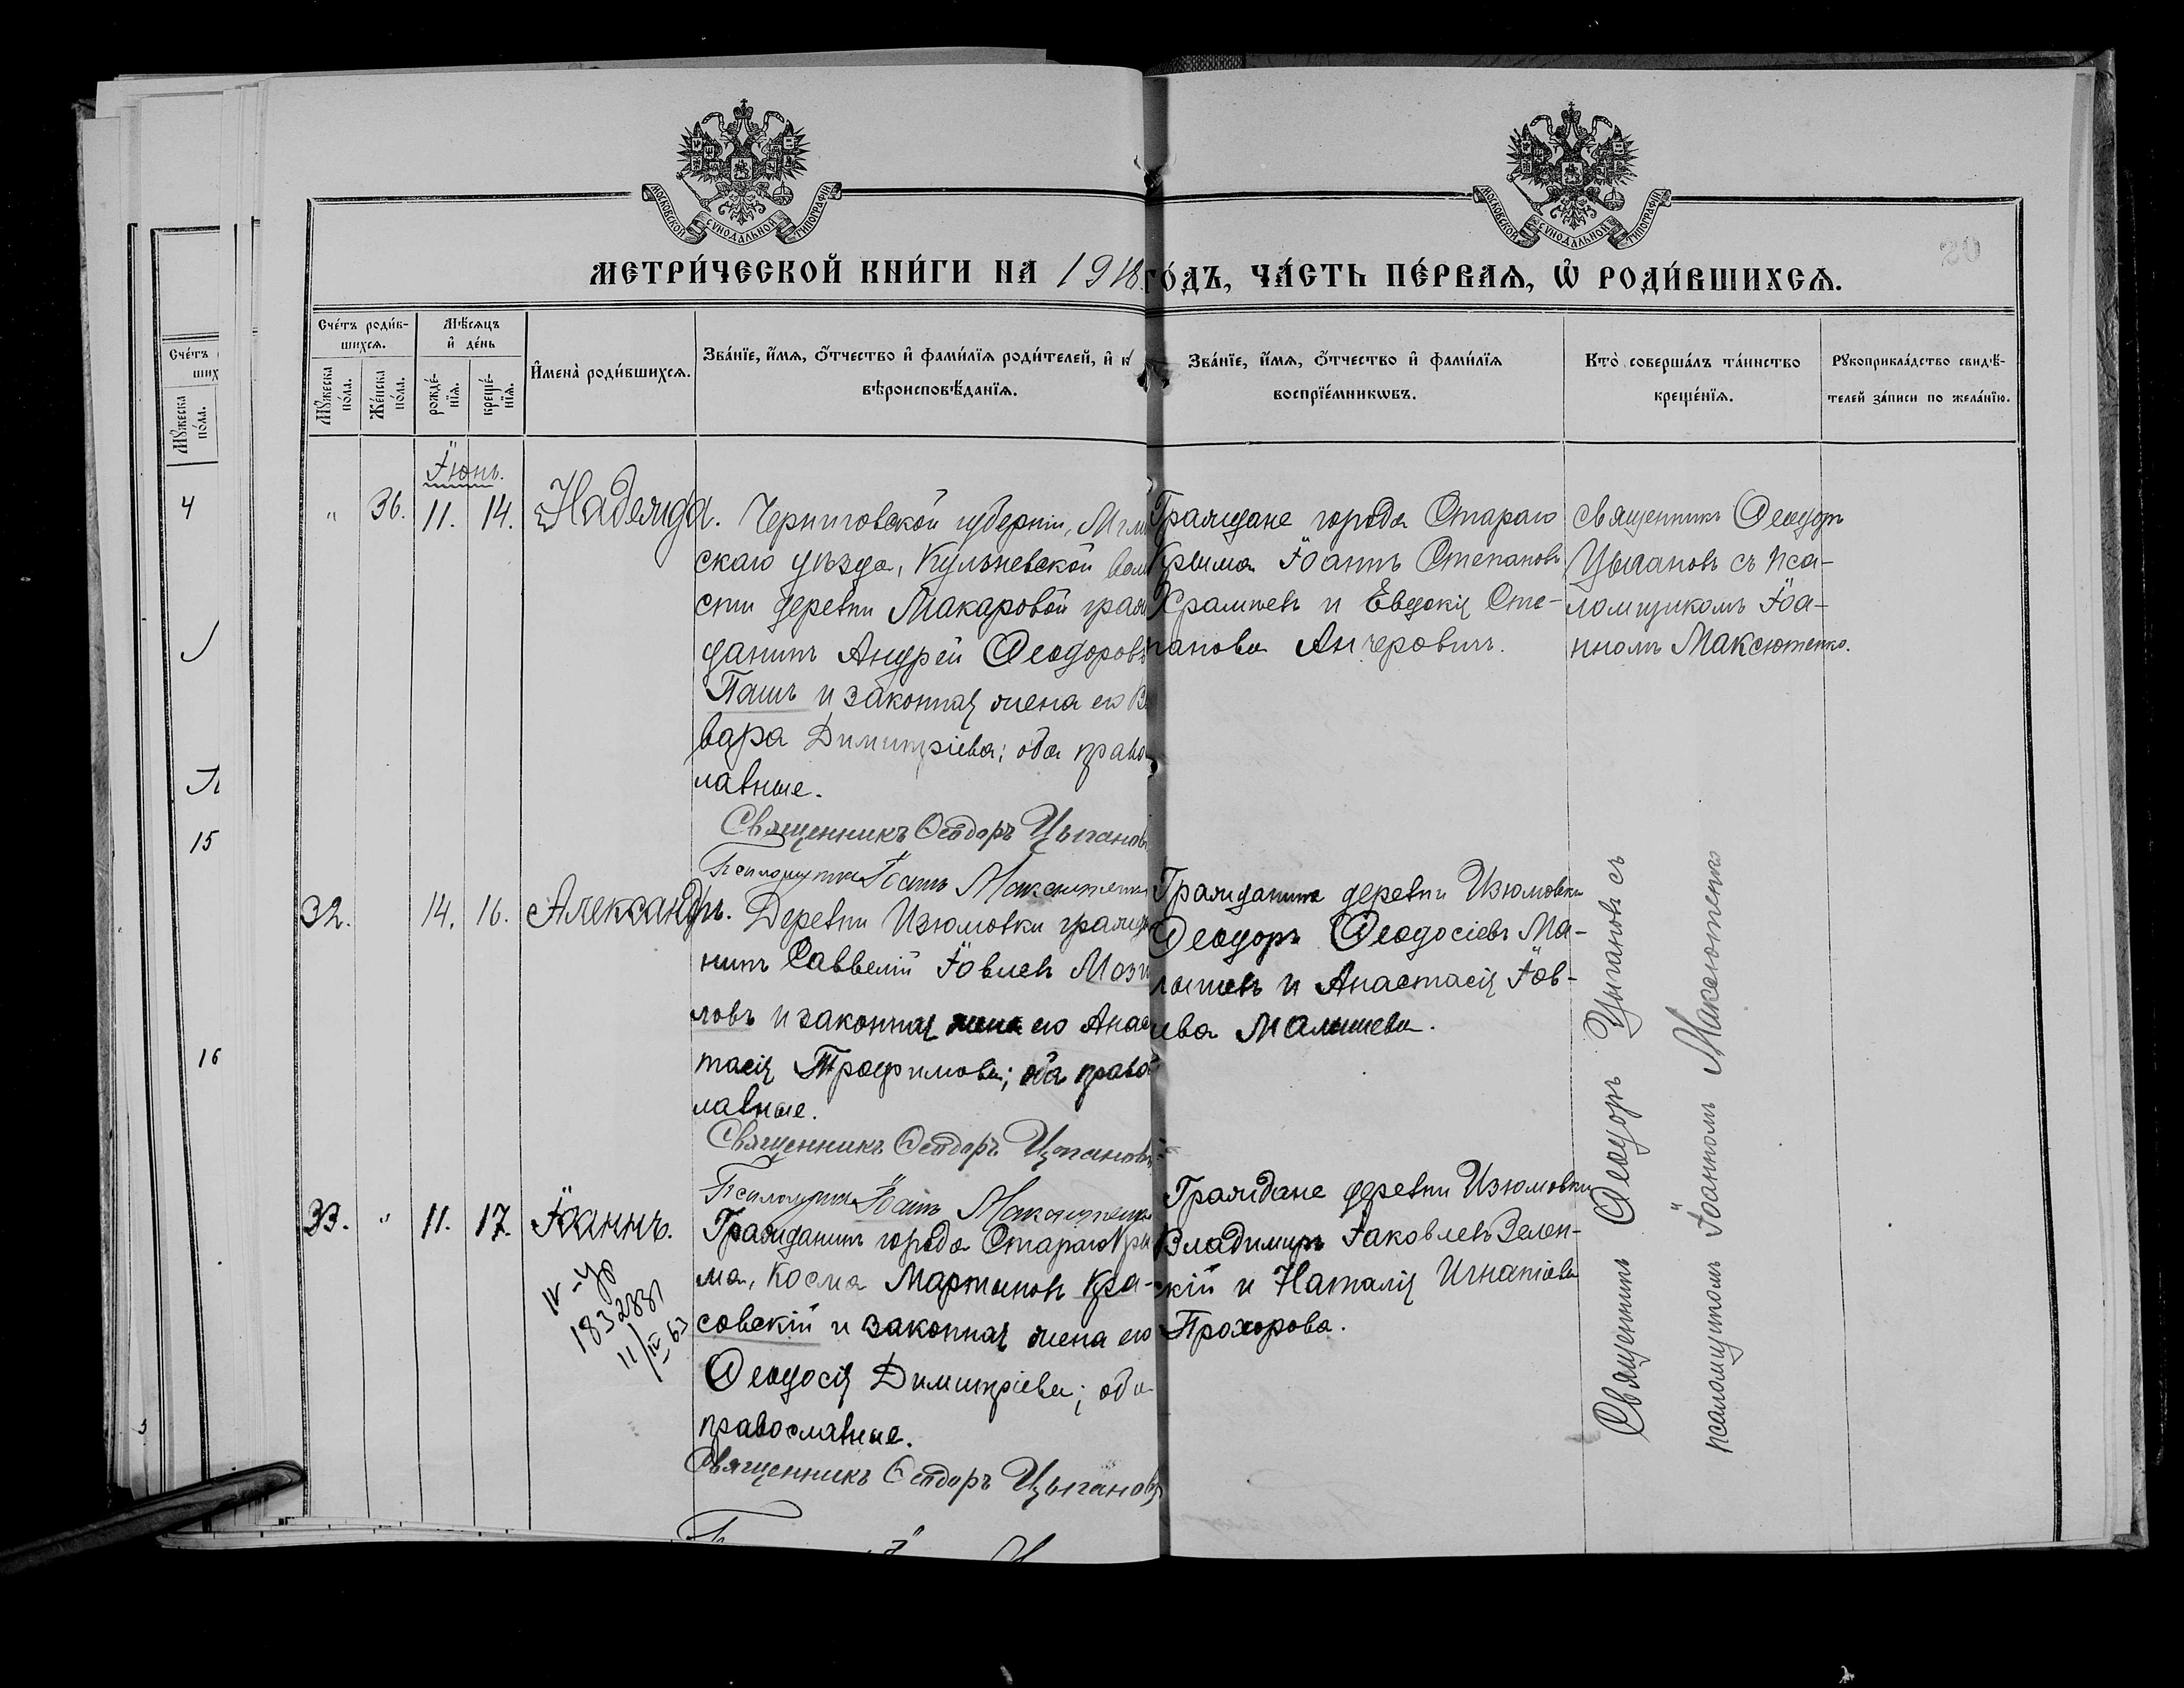 МОСКОВСКОЙ СѴНОДАЛЬНОЙ ТИПОГРАФІИ
МОСКОВСКОЙ СѴНОДАЛЬНОЙ ТИПОГРАФІИ
20
МЕТРИ́ЧЕСКОЙ КНИ́ГИ НА 1918 ГО́ДЪ, ЧА́СТЬ ПЕ́РВАѦ, Ѡ҆ РОДИ́ВШИХСѦ.
Сче́тъ роди́в-
шихсѧ.
Мꙋ́жеска по́ла.
Же́нска по́ла.
Мѣ́сѧцъ
и҆ де́нь
рожде́-
нїѧ.
креще́-
нїѧ.
И҆мена̀ роди́вшихсѧ.
Зва́нїе, и҆́мѧ, ѻ҆́тчество и҆ фами́лїѧ роди́телей, и҆ к
вѣроисповѣ́данїѧ.
Зва́нїе, и҆́мѧ, ѻ҆́тчество и҆ фами́лїѧ
воспрїе́мникѡвъ.
Кто̀ соверша́лъ та́инство
креще́нїѧ.
Рꙋкоприкла́дство свидѣ́-
телей за́писи по жела́нїю.
Іюнь.
" 36. 11. 14. Надежда.
Черниговской губерніи, Мгли
скаго уѣзда, Кульневской вол
сти деревни Макаровой граж
данинъ Андрей Ѳеодоровъ
Пашъ и законная жена его Ва
вара Димитріева; оба право
лавные.
Священникъ Ѳеодоръ Цыгановъ
Псаломщикъ Іоаннъ Максютенко
Граждане города Стараго
Крыма Іоаннъ Степановъ
Храмцевъ и Евдокія Сте-
панова Анчеровичъ.
Священникъ Ѳеодоръ
Цыгановъ съ пса-
ломщикомъ Іоа-
нномъ Максютенко.
32. 14. 16. Александръ.
Деревни Изюмовки гражда
нинъ Савелій Іовлевъ Мози
ловъ и законная жена его Анас
тасія Трофимова; оба право
лавные.
Священникъ Ѳеодоръ Цыгановъ
Псаломщикъ Іоаннъ Максютенко
Гражданинъ деревни Изюмовки
Ѳеодоръ Ѳеодосіевъ Ма-
лышевъ и Анастасія Іов-
лева Малышева.
33. " 11. 17. Іоаннъ.
IV-УР
1832881
11/IV 63
Гражданинъ города Стараго Кры
ма, Косма Мартыновъ Кра-
совскій и законная жена его
Ѳеодосія Димитріева; оба
православные.
Священникъ Ѳеодоръ Цыгановъ
Граждане деревни Изюмовки
Владимиръ Іаковлевъ Зелен-
скій и Наталія Игнатіева
Прохорова.
Священникъ Ѳеодоръ Цыгановъ съ
псаломщикомъ Іоанномъ Максютенко